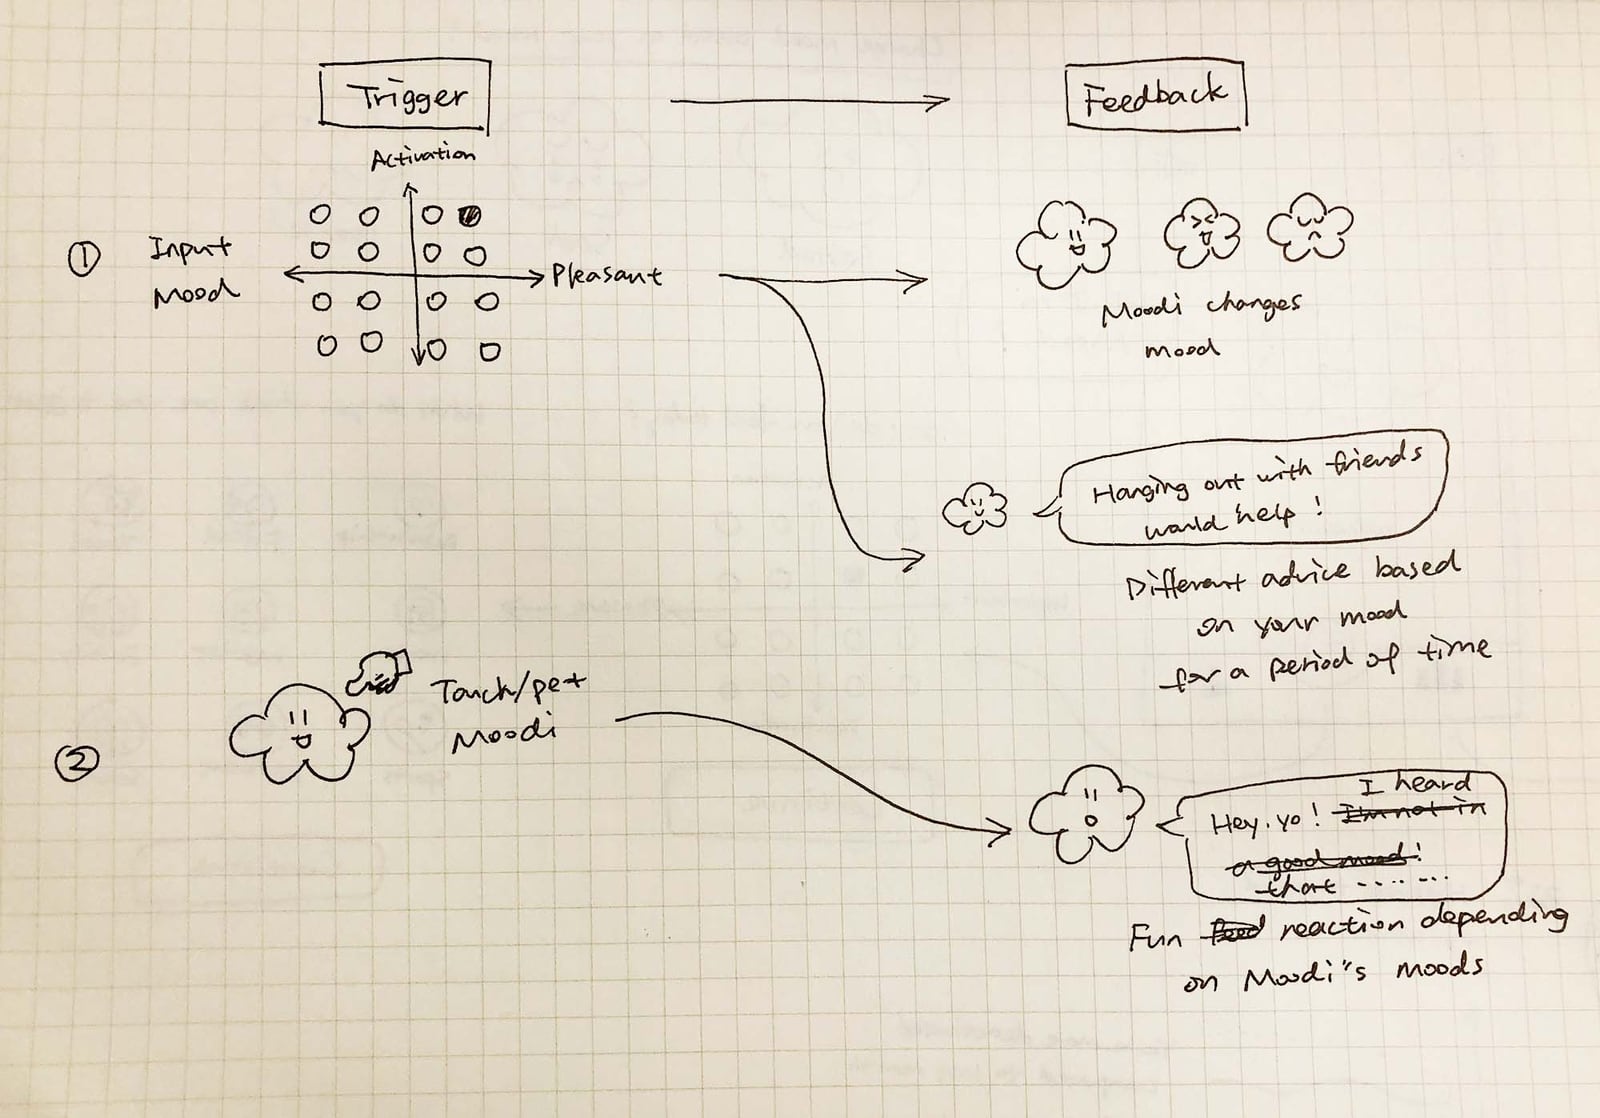 Trigger
Feedback
Activation
①
Input
Mood
Pleasant
Moodi changes
mood
Hanging out with friends
would help!
Different advice based
on your mood
for a period of time
②
Touch/pet
Moodi
I heard
Hey.yo! I'm not in
a good mood!
that .... ...
Fun Feed reaction depending
on Moodi's moods